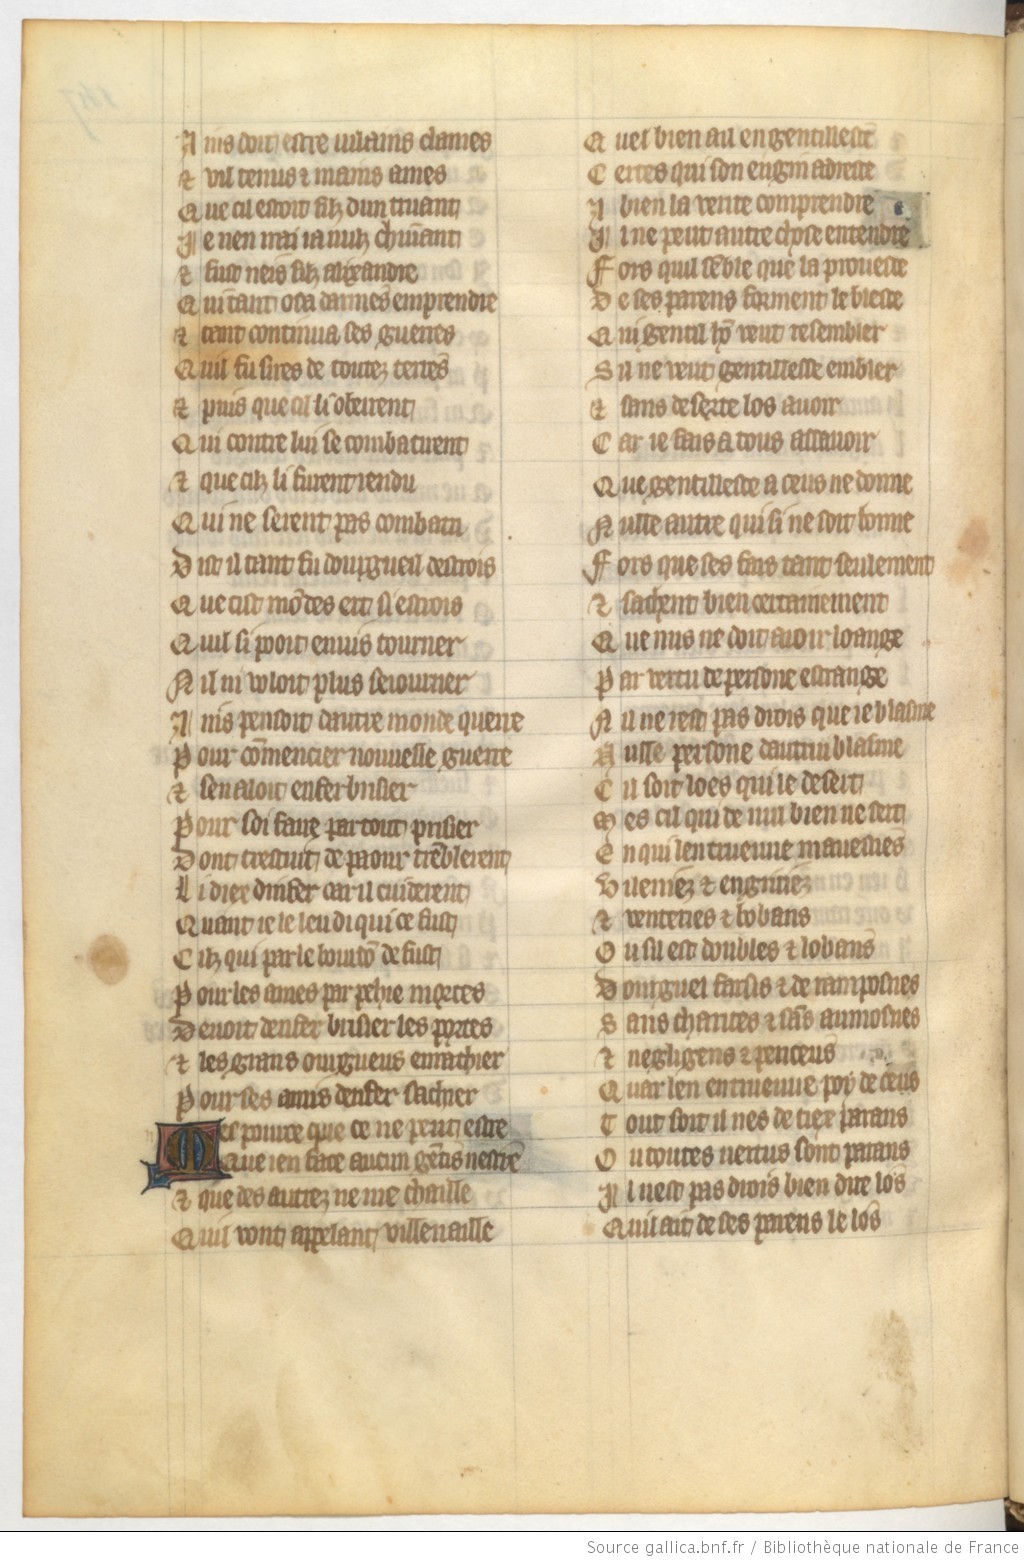 A ins doit estre vilains clames
⁊ vil tenus ⁊ mains ames
Q ue cil estoit filz dun truant
J e nen irai ia nulz chuuant
⁊ fust neis filz alixandre
Q ui tant osa darmes emprendre
⁊ tant continua ses guerres
Q uil fu sires de toutez terres
⁊ puis que cil li obeirent
Q ui contre lui se combatirent
⁊ que cilz li furent rendu
Q ui ne serent pas combatu
D ist il tant fu dourgueil destrois
Q ue cist mōdes ert si estrois
Q uil si pooit enuis tourner
N il ni voloit plus seiourner
A ins pensoit dautre monde querre
P our cōmencier nouuelle guerre
⁊ sen aloit enfer brisier
P our soi faire par tout prisier
D ont trestuit de paour trēblerent
L i diex dinfer car il cuiderent
Q uant ie le leu di qui ce fust
C ilz qui par le bourdō de fust
P our les ames par pechie mortes
D euoit denfer brisier les portes
⁊ les grans ourgueus enrachier
P our ses amis denfer sachier
M es pource que ce ne peut estre
Que ien face aucun gētis nestre
⁊ que des autrez ne me chaille
Q uil vont appelant villenaille
Q uel bien a il en gentillesce
C ertes qui son engin adresce
A bien la verite comprendre
J l ne peut autre chose entendre
F ors quil sēble que la prouesce
D e ses parens forment le blesce
Q ui gentil hō veut resembler
S il ne veut gentillesse embler
⁊ sans deserte los auoir
C ar ie fais a tous assauoir
Q ue gentillesce a ceus ne donne
N ulle autre qui si ne soit bonne
F ors que ses fais tant seulement
⁊ sachent bien certainement
Q ue nus ne doit auoir loange
P ar vertu de persone estrange
N il ne rest pas drois que ie blasme
N ulle persone dautrui blasme
C il soit loes qui le desert
M es cil qui de nul bien ne sert
E n qui len truenue mauesties
V ileniez ⁊ engrutiez
⁊ venteries ⁊ bobans
O u sil est doubles ⁊ lobans
D ourguel farsis ⁊ de ramposnes
S ans charites ⁊ sās aumosnes
⁊ negligens ⁊ penceus
Q uar len en truenue poy de ceus
T out soit il nes de tiex parans
O u toutes vertus sont parans
J l nest pas drois bien due los
Q uil ait de ses parens le los